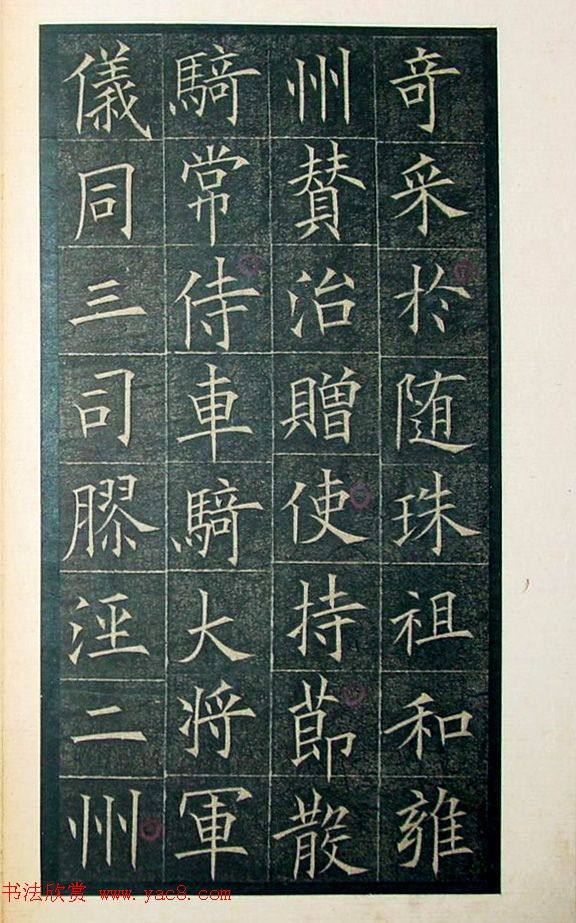 奇采扵随珠祖和雍
州賛治贈使持莭散
騎常侍車騎大将軍
儀同三司膠涇二州
书法欣赏 www.yac8.com